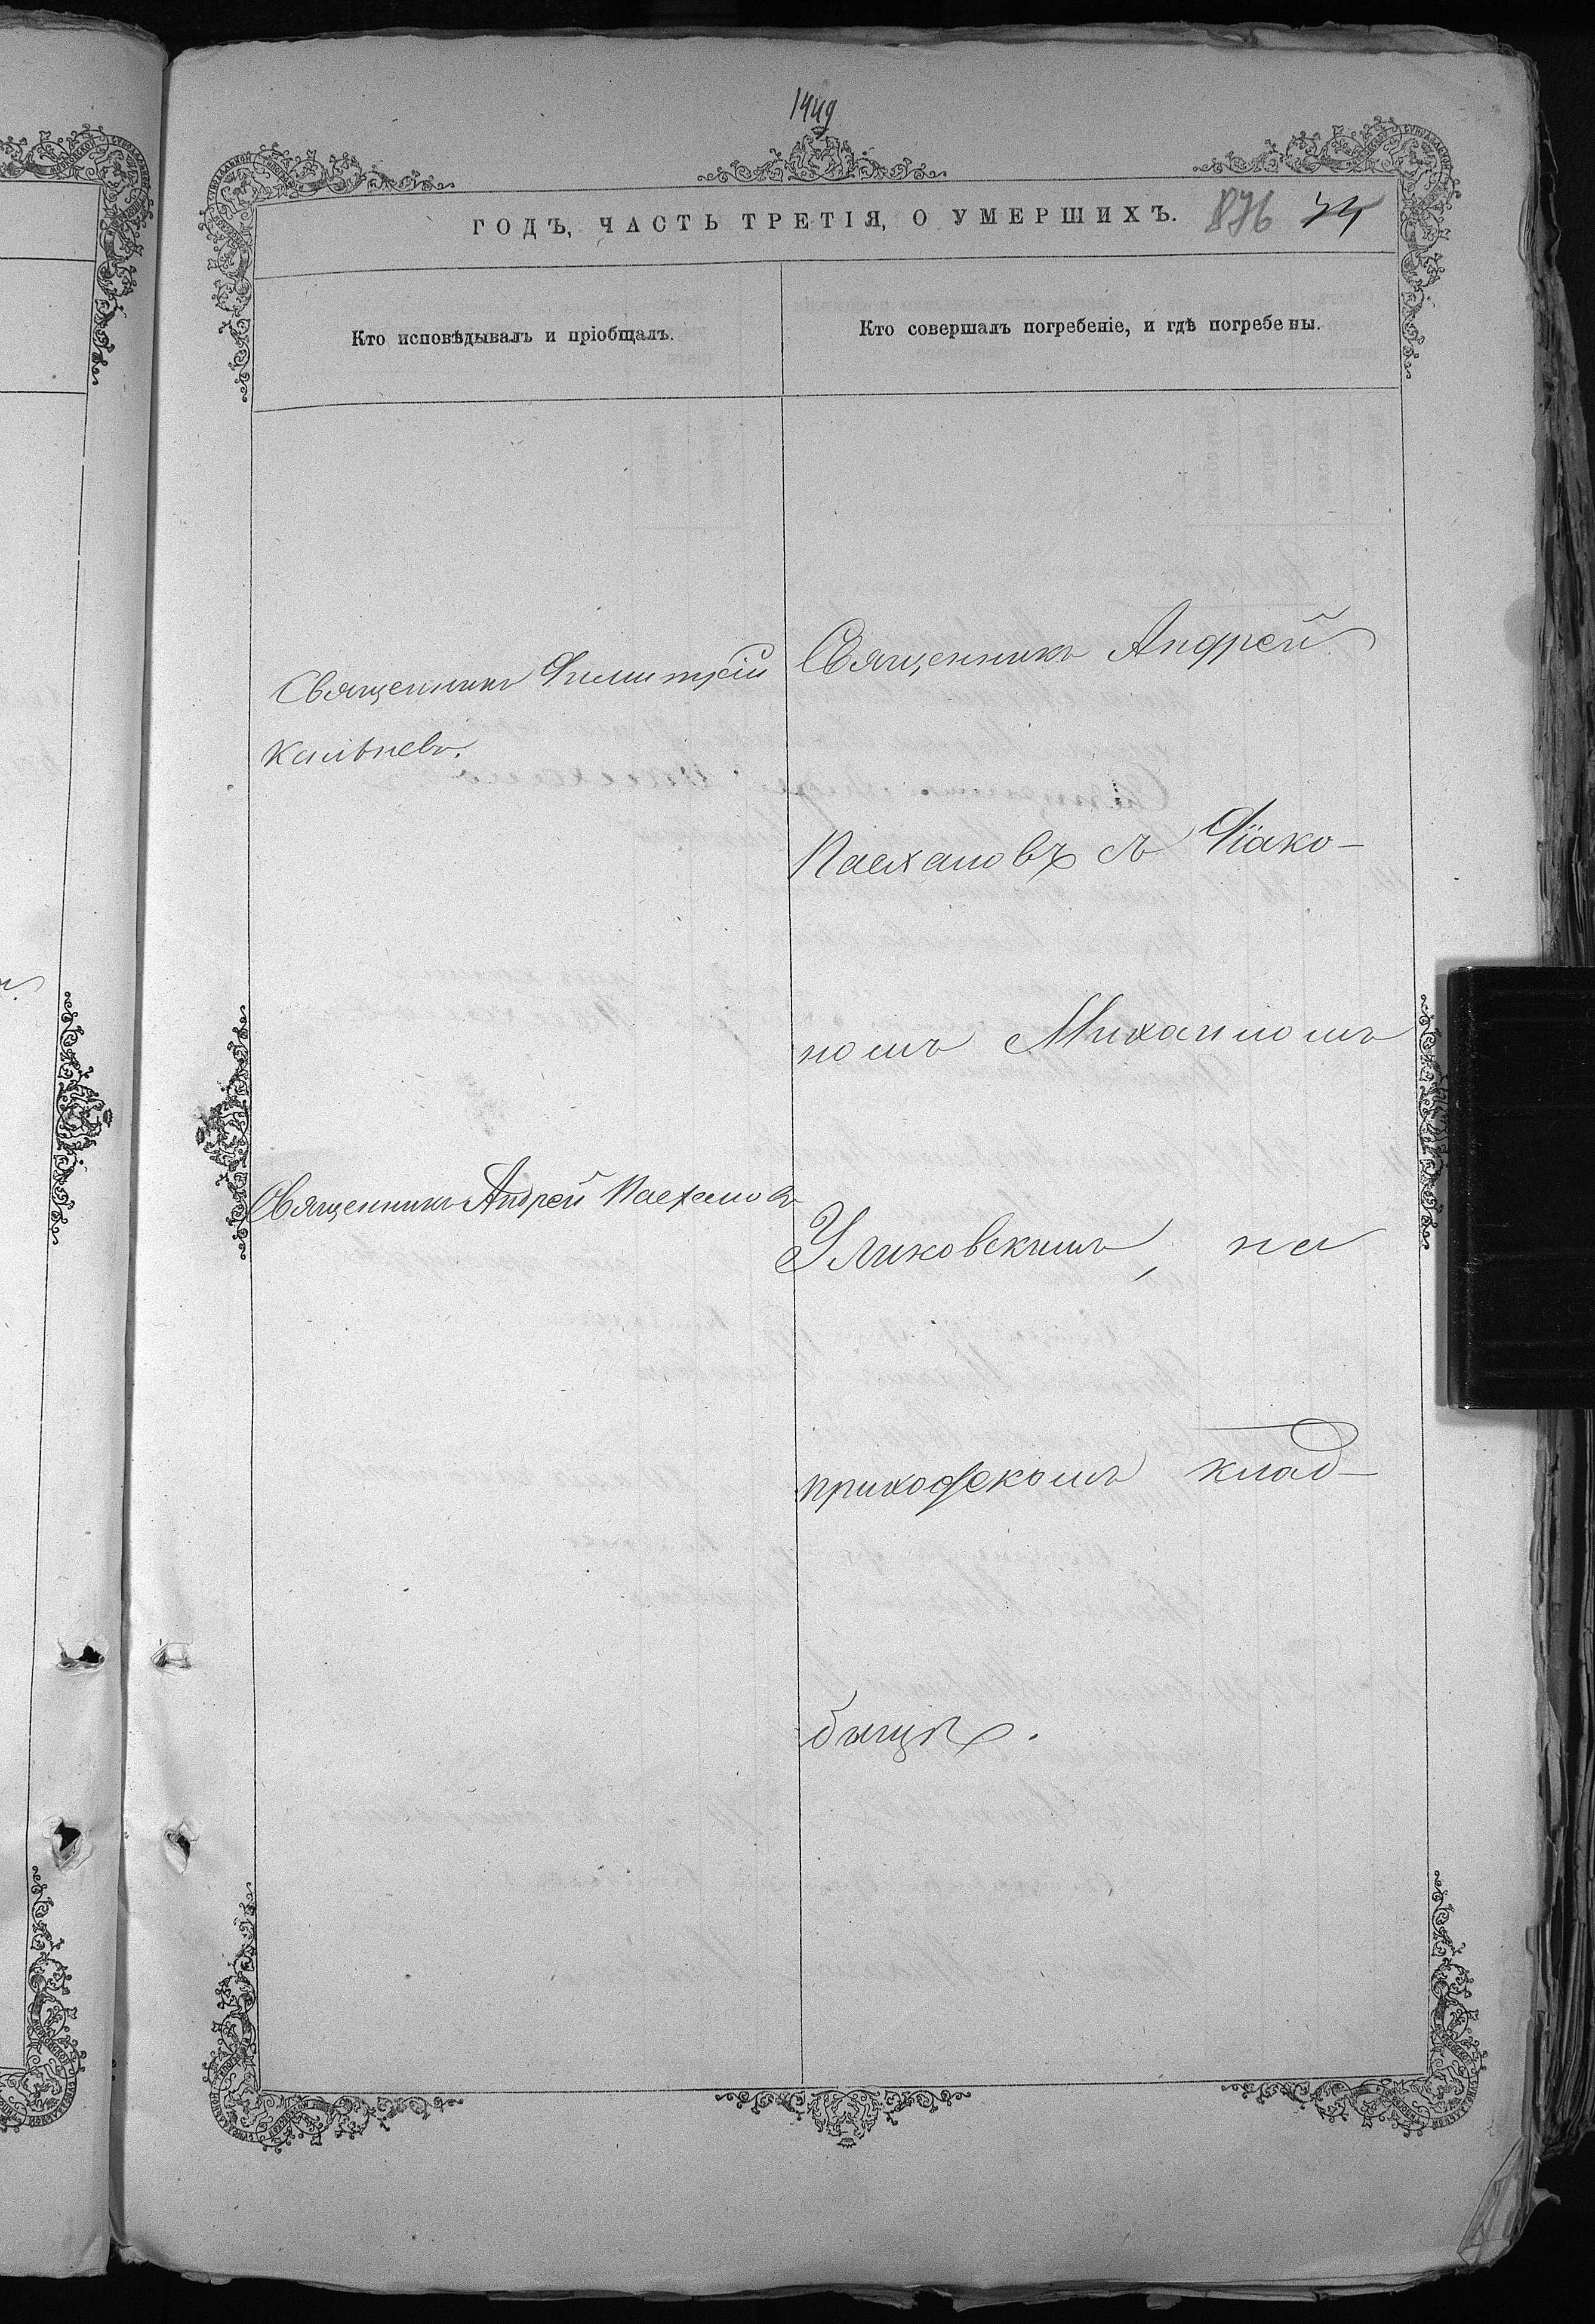 1449
ГОДЪ, ЧАСТЬ ТРЕТІЯ, О УМЕРШИХЪ. 876
Кто исповѣдывалъ и пріобщалъ.
Кто совершалъ погребеніе, и гдѣ погребены.
Священникъ Димитрій
Священникъ Андрей Пасхаловъ
Священникъ Андрей
Пасхаловъ съ Діако-
номъ Михаиломъ
Уликовскимъ, на
приходскомъ клад-
бищѣ.